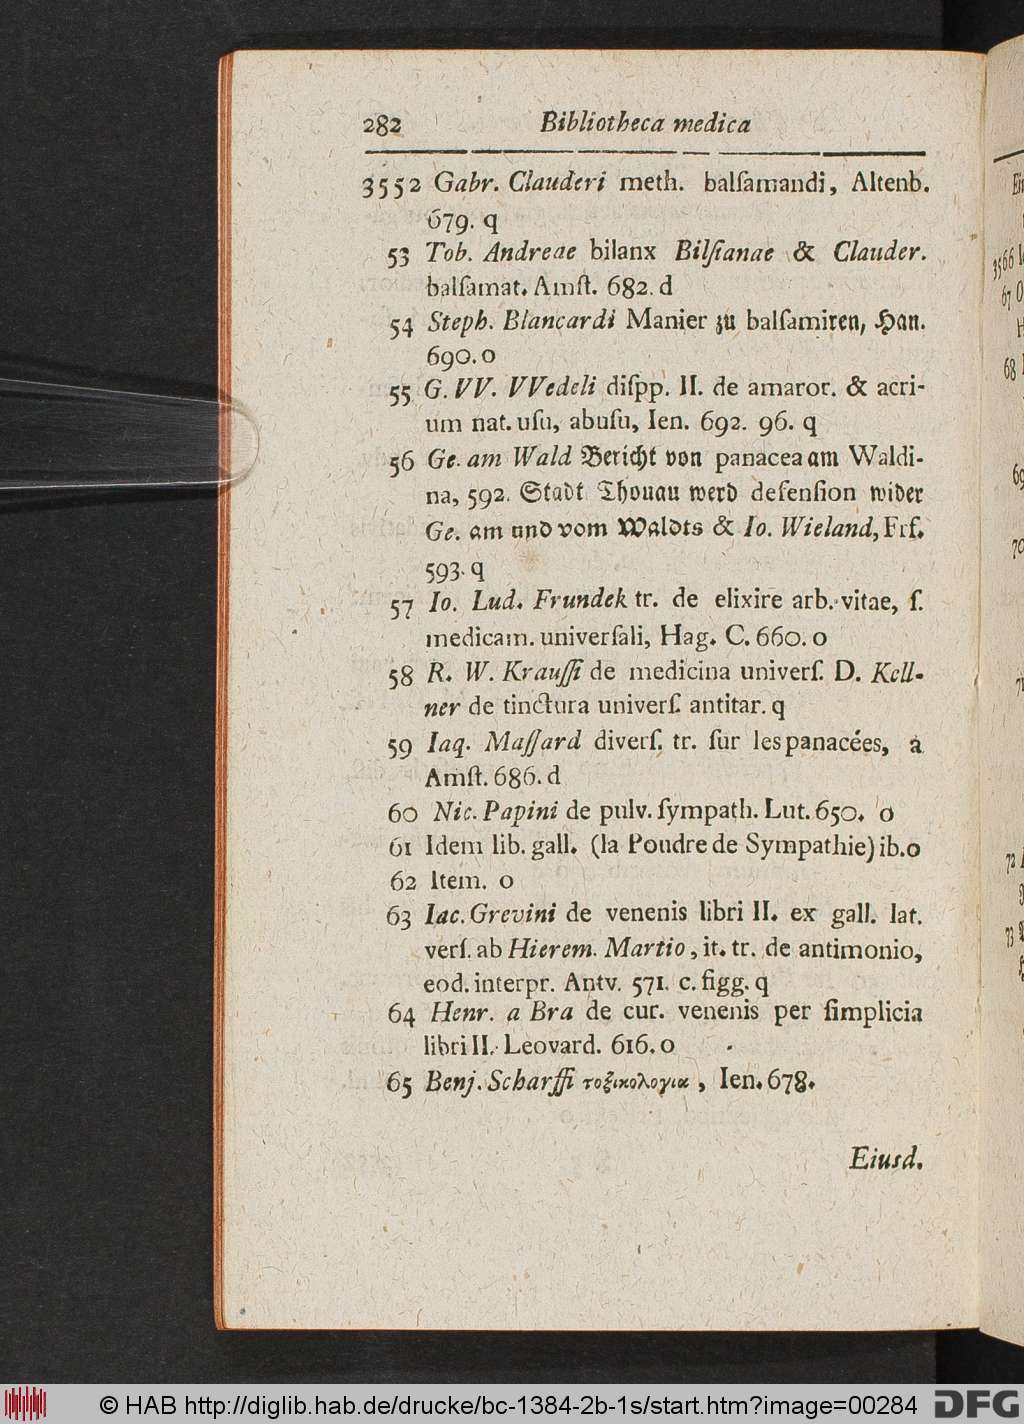 282 Bibliotheca medica
3552 Gabr. Clauderi meth. balſamandi, Altenb.
679. q
53 Tob. Andreae bilanx Bilſianae & Clauder.
balſamat. Amſt. 682. d
54 Steph. Blancardi Manier zu balſamiren, Han.
690. o
55 G. VV. VVedeli diſpp. II. de amaror. & acri-
um nat. uſu, abuſu, Ien. 692. 96. q
56 Ge. am Wald Bericht von panacea am Waldi-
na, 592. Stadt Thonau werd defenſion wider
Ge. am und vom Waldts & Io. Wieland, Frf.
593. q
57 Io. Lud. Frundek tr. de elixire arb. vitae, ſ.
medicam. univerſali, Hag. C. 660. o
58 R. W. Krauſſi de medicina univerſ. D. Kell-
ner de tinctura univerſ. antitar. q
59 Iaq. Maſſard diverſ. tr. ſur les panacées, a
Amſt. 686. d
60 Nic. Papini de pulv. ſympath. Lut. 650. o
61 Idem lib. gall. (la Poudre de Sympathie) ib. o
62 Item. o
63 Iac. Grevini de venenis libri II. ex gall. lat.
verſ. ab Hierem. Martio, it. tr. de antimonio,
eod. interpr. Antv. 571. c. figg. q
64 Henr. a Bra de cur. venenis per ſimplicia
libri II. Leovard. 616. o
65 Benj. Scharffi τοξικολογια, Ien. 678.
Eiusd.
© HAB http://diglib.hab.de/drucke/bc-1384-2b-1s/start.htm?image=00284
DFG